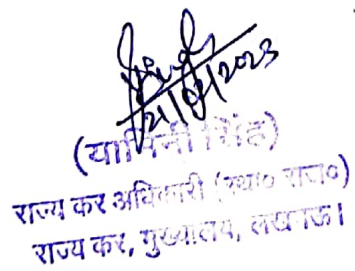 21/09/2023
(यामिनी सिंह)
राज्य कर अधिकारी (स्था० राज०)
राज्य कर, मुख्यालय, लखनऊ।